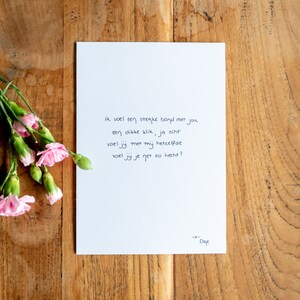 ik voel een sterke band met jou
een dikke klik, ja echt
voel jij met mij hetzelfde
voel jij je net zo hecht?